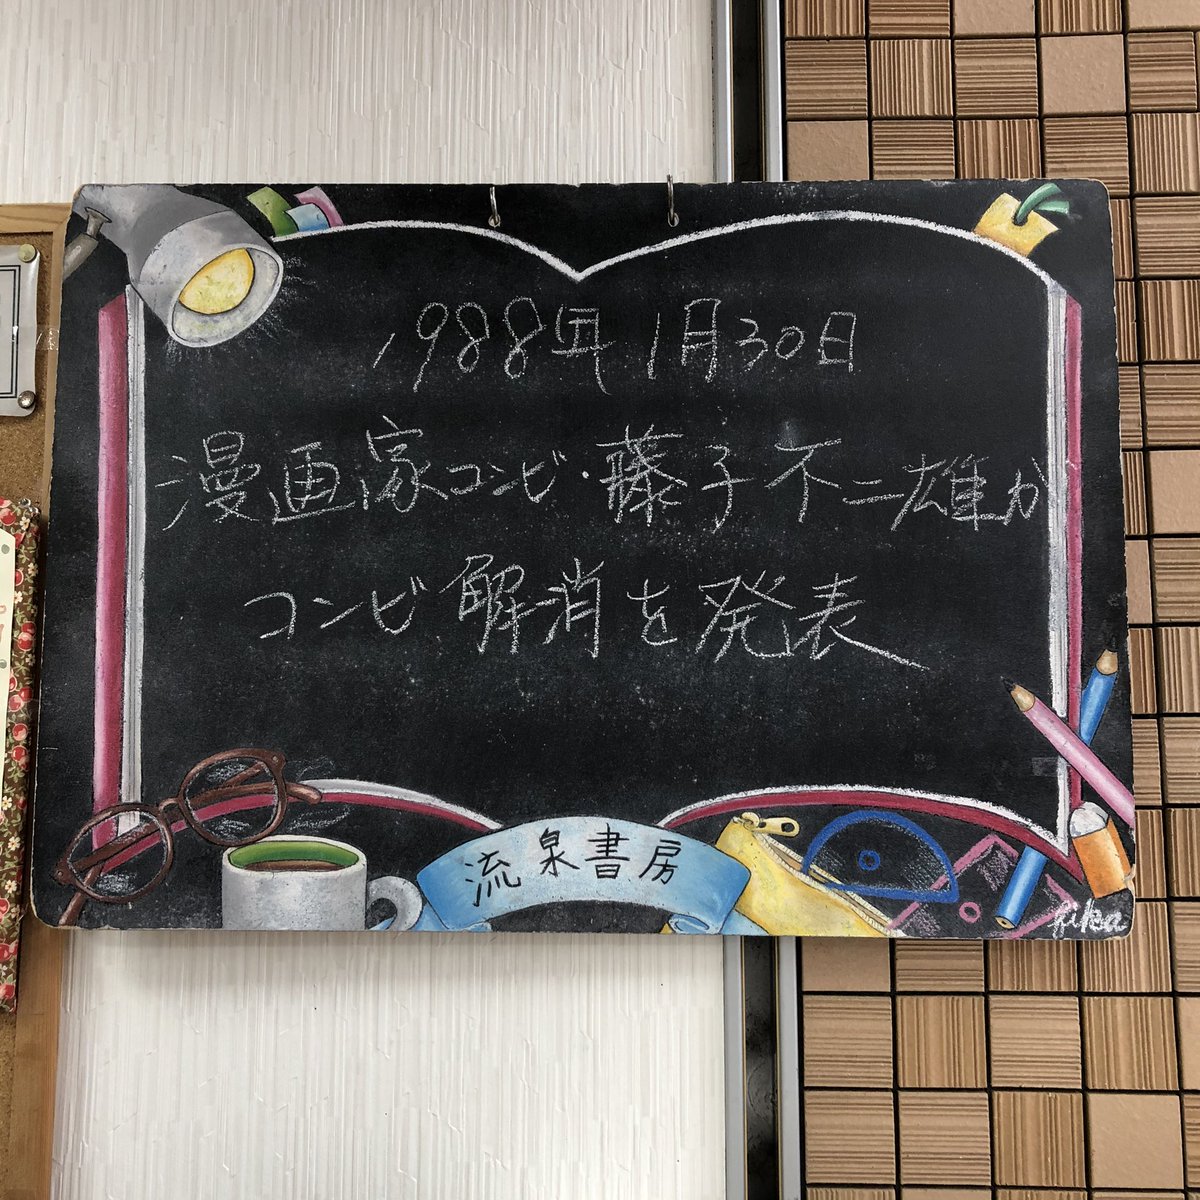 1988年1月30日
漫画家コンビ・藤子不二雄が
コンビ解消を発表
流泉書房
fika